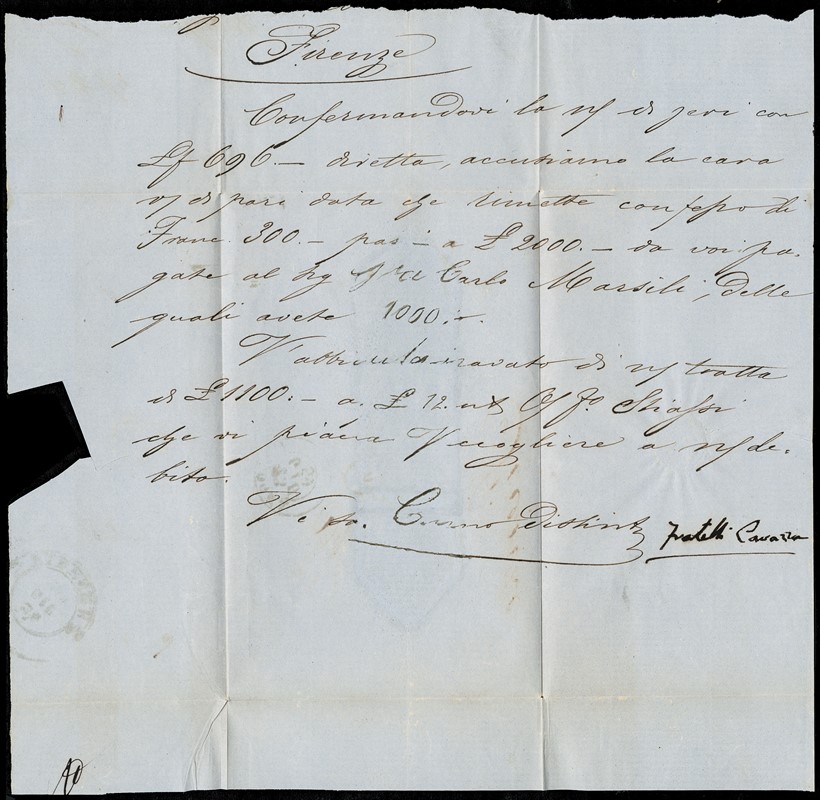 Firenze
Confermandovi la n/ di jeri con
£f 696.— diretta, accusiamo la cara
v/ di pari data che rimette con fapo di
Franc. 300.— pas — a £ 2000.— da voi pa-
gate al Sig Carlo Marsili, delle
quali avete 1000.—
di n/ tratta
di £ 1100.— a. £ 12.
che vi piacerà accogliere a n/ de-
bito.
Vi Distint
Fratelli Cavazza